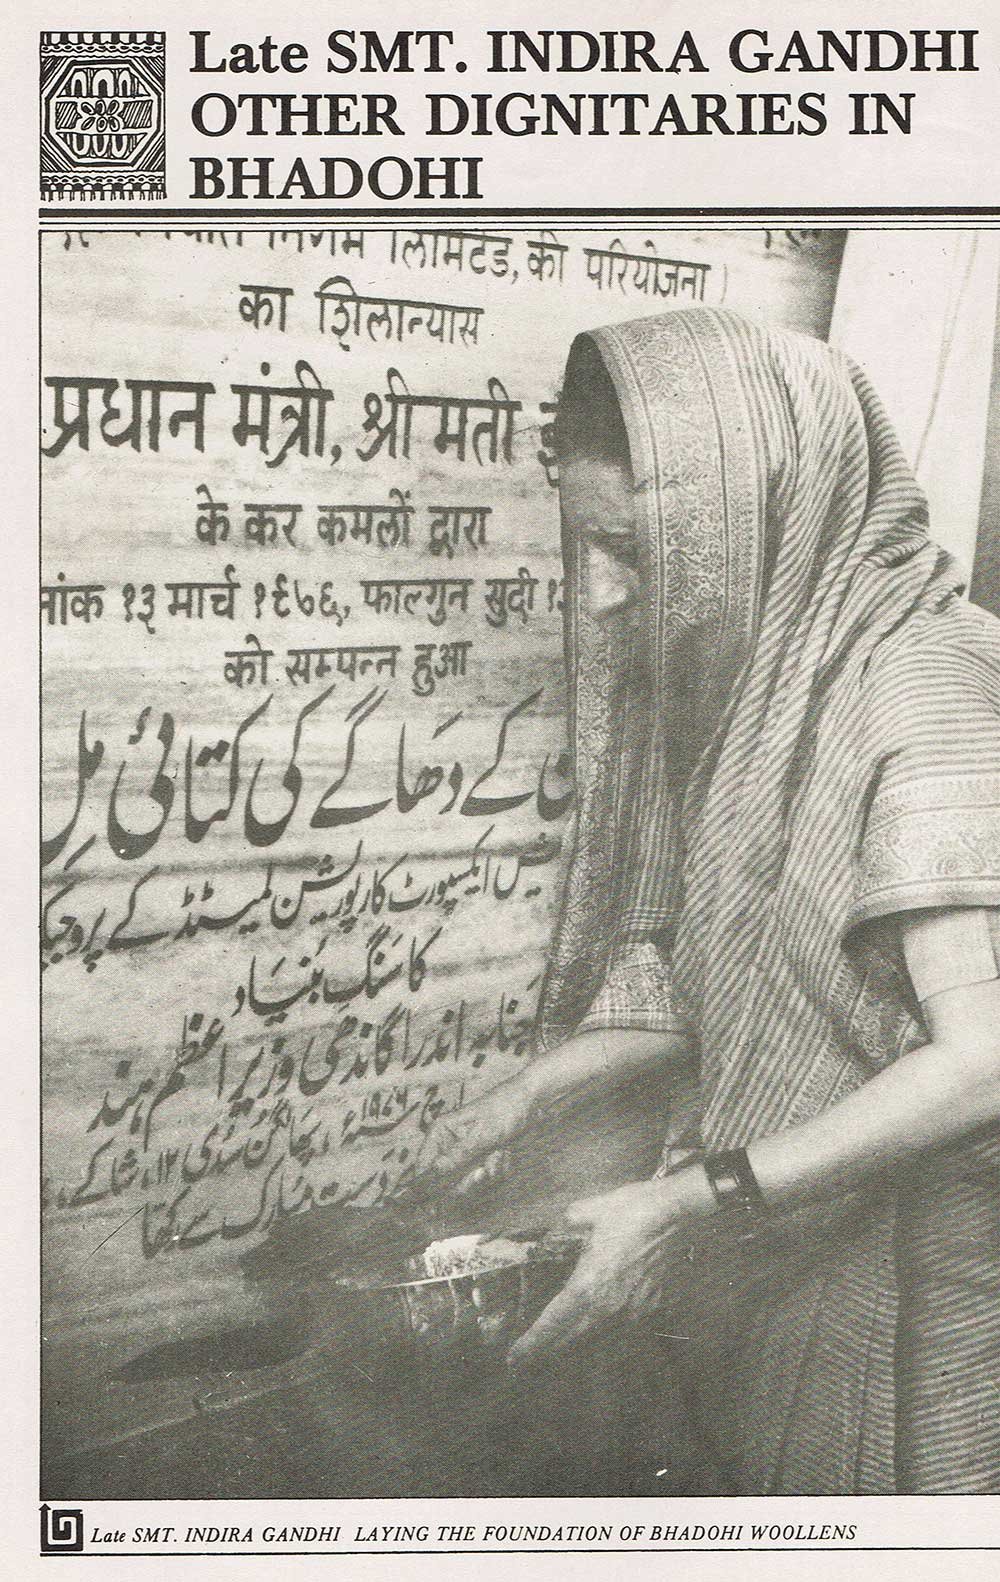 Late SMT. INDIRA GANDHI
OTHER DIGNITARIES IN
BHADOHI
निगम लिमिटेड, की परियोजना
का शिलान्यास
प्रधान मंत्री, श्री मती
के कर कमलों द्वारा
१३ मार्च १९७६, फाल्गुन सुदी
को सम्पन्न हुआ
کے دھاگے کی کتائی مِل
ایکسپورٹ کارپوریشن لمیٹڈ کے
کا سَنگِ بُنیَاد
اندرا گاندھی وزیرِ اعظم ہند
دست مبارک سے
Late SMT. INDIRA GANDHI LAYING THE FOUNDATION OF BHADOHI WOOLLENS